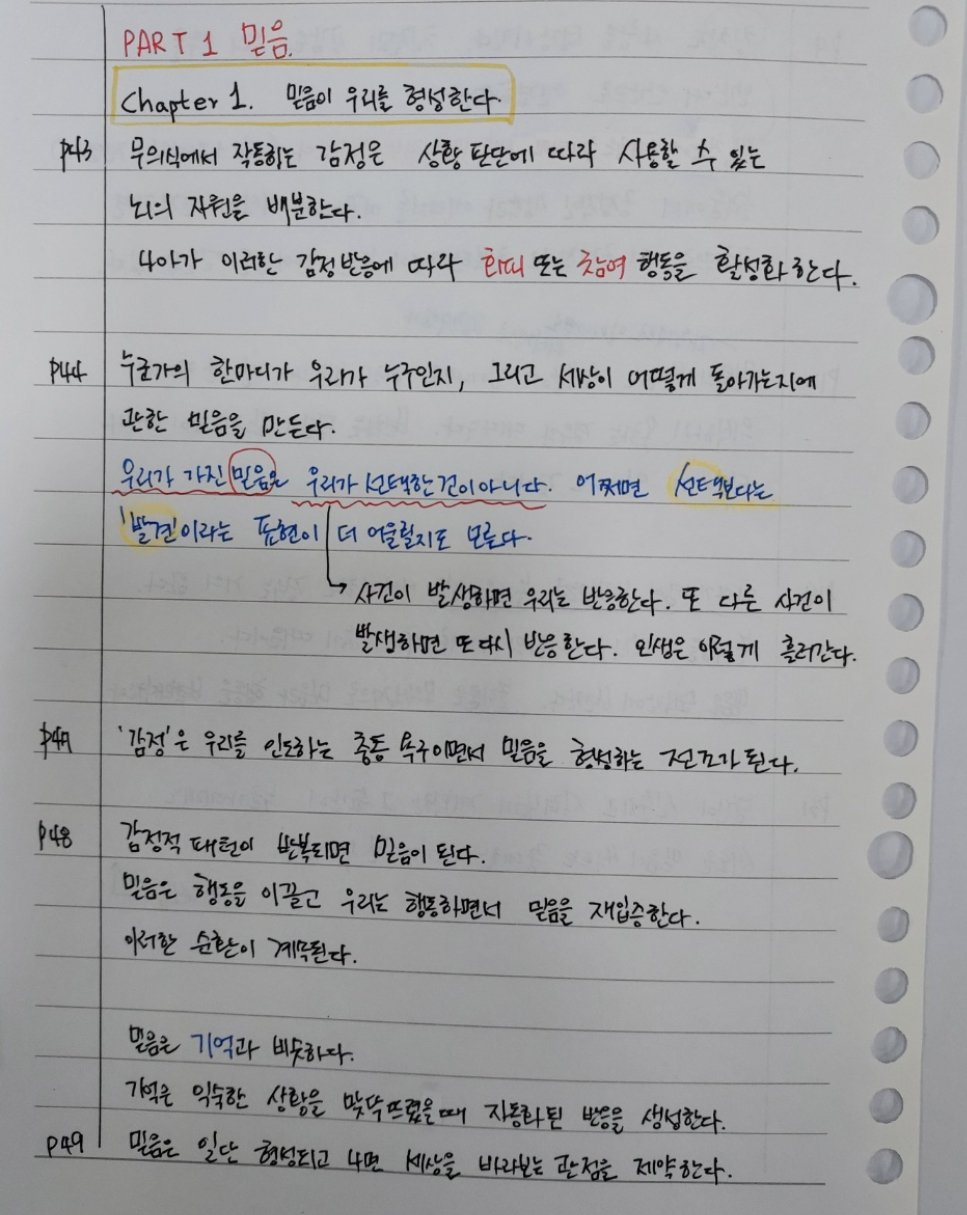 PART 1 믿음.
Chapter 1. 믿음이 우리를 형성한다.
P43 무의식에서 작동하는 감정은 상황 판단에 따라 사용할 수 있는
뇌의 자원을 배분한다.
나아가 이러한 감정 반응에 따라 회피 또는 참여 행동을 활성화 한다.
P44 누군가의 한마디가 우리가 누구인지, 그리고 세상이 어떻게 돌아가는지에
관한 믿음을 만든다.
우리가 가진 믿음은 우리가 선택한 것이 아니다. 어쩌면 선택보다는
'발견'이라는 표현이 더 어울릴지도 모른다.
→ 사건이 발생하면 우리는 반응한다. 또 다른 사건이
발생하면 또 다시 반응한다. 인생은 이렇게 흘러간다.
P47 '감정'은 우리를 인도하는 충동 욕구이면서 믿음을 형성하는 전조가 된다.
P48 감정적 패턴이 반복되면 믿음이 된다.
믿음은 행동을 이끌고 우리는 행동하면서 믿음을 재입증한다.
이러한 순환이 계속된다.
믿음은 기억과 비슷하다.
기억은 익숙한 상황을 맞딱뜨렸을 때 자동화된 반응을 생성한다.
P49 믿음은 일단 형성되고 나면 세상을 바라보는 관점을 제약한다.